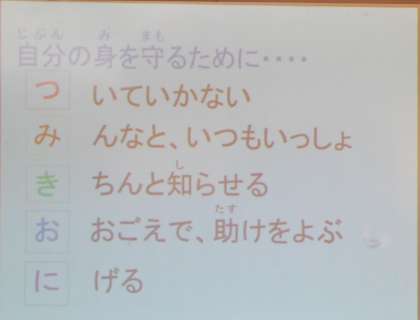 自分の身を守るために・・・・
つ いていかない
み んなと、いつもいっしょ
き ちんと知らせる
お おごえで、助けをよぶ
に げる